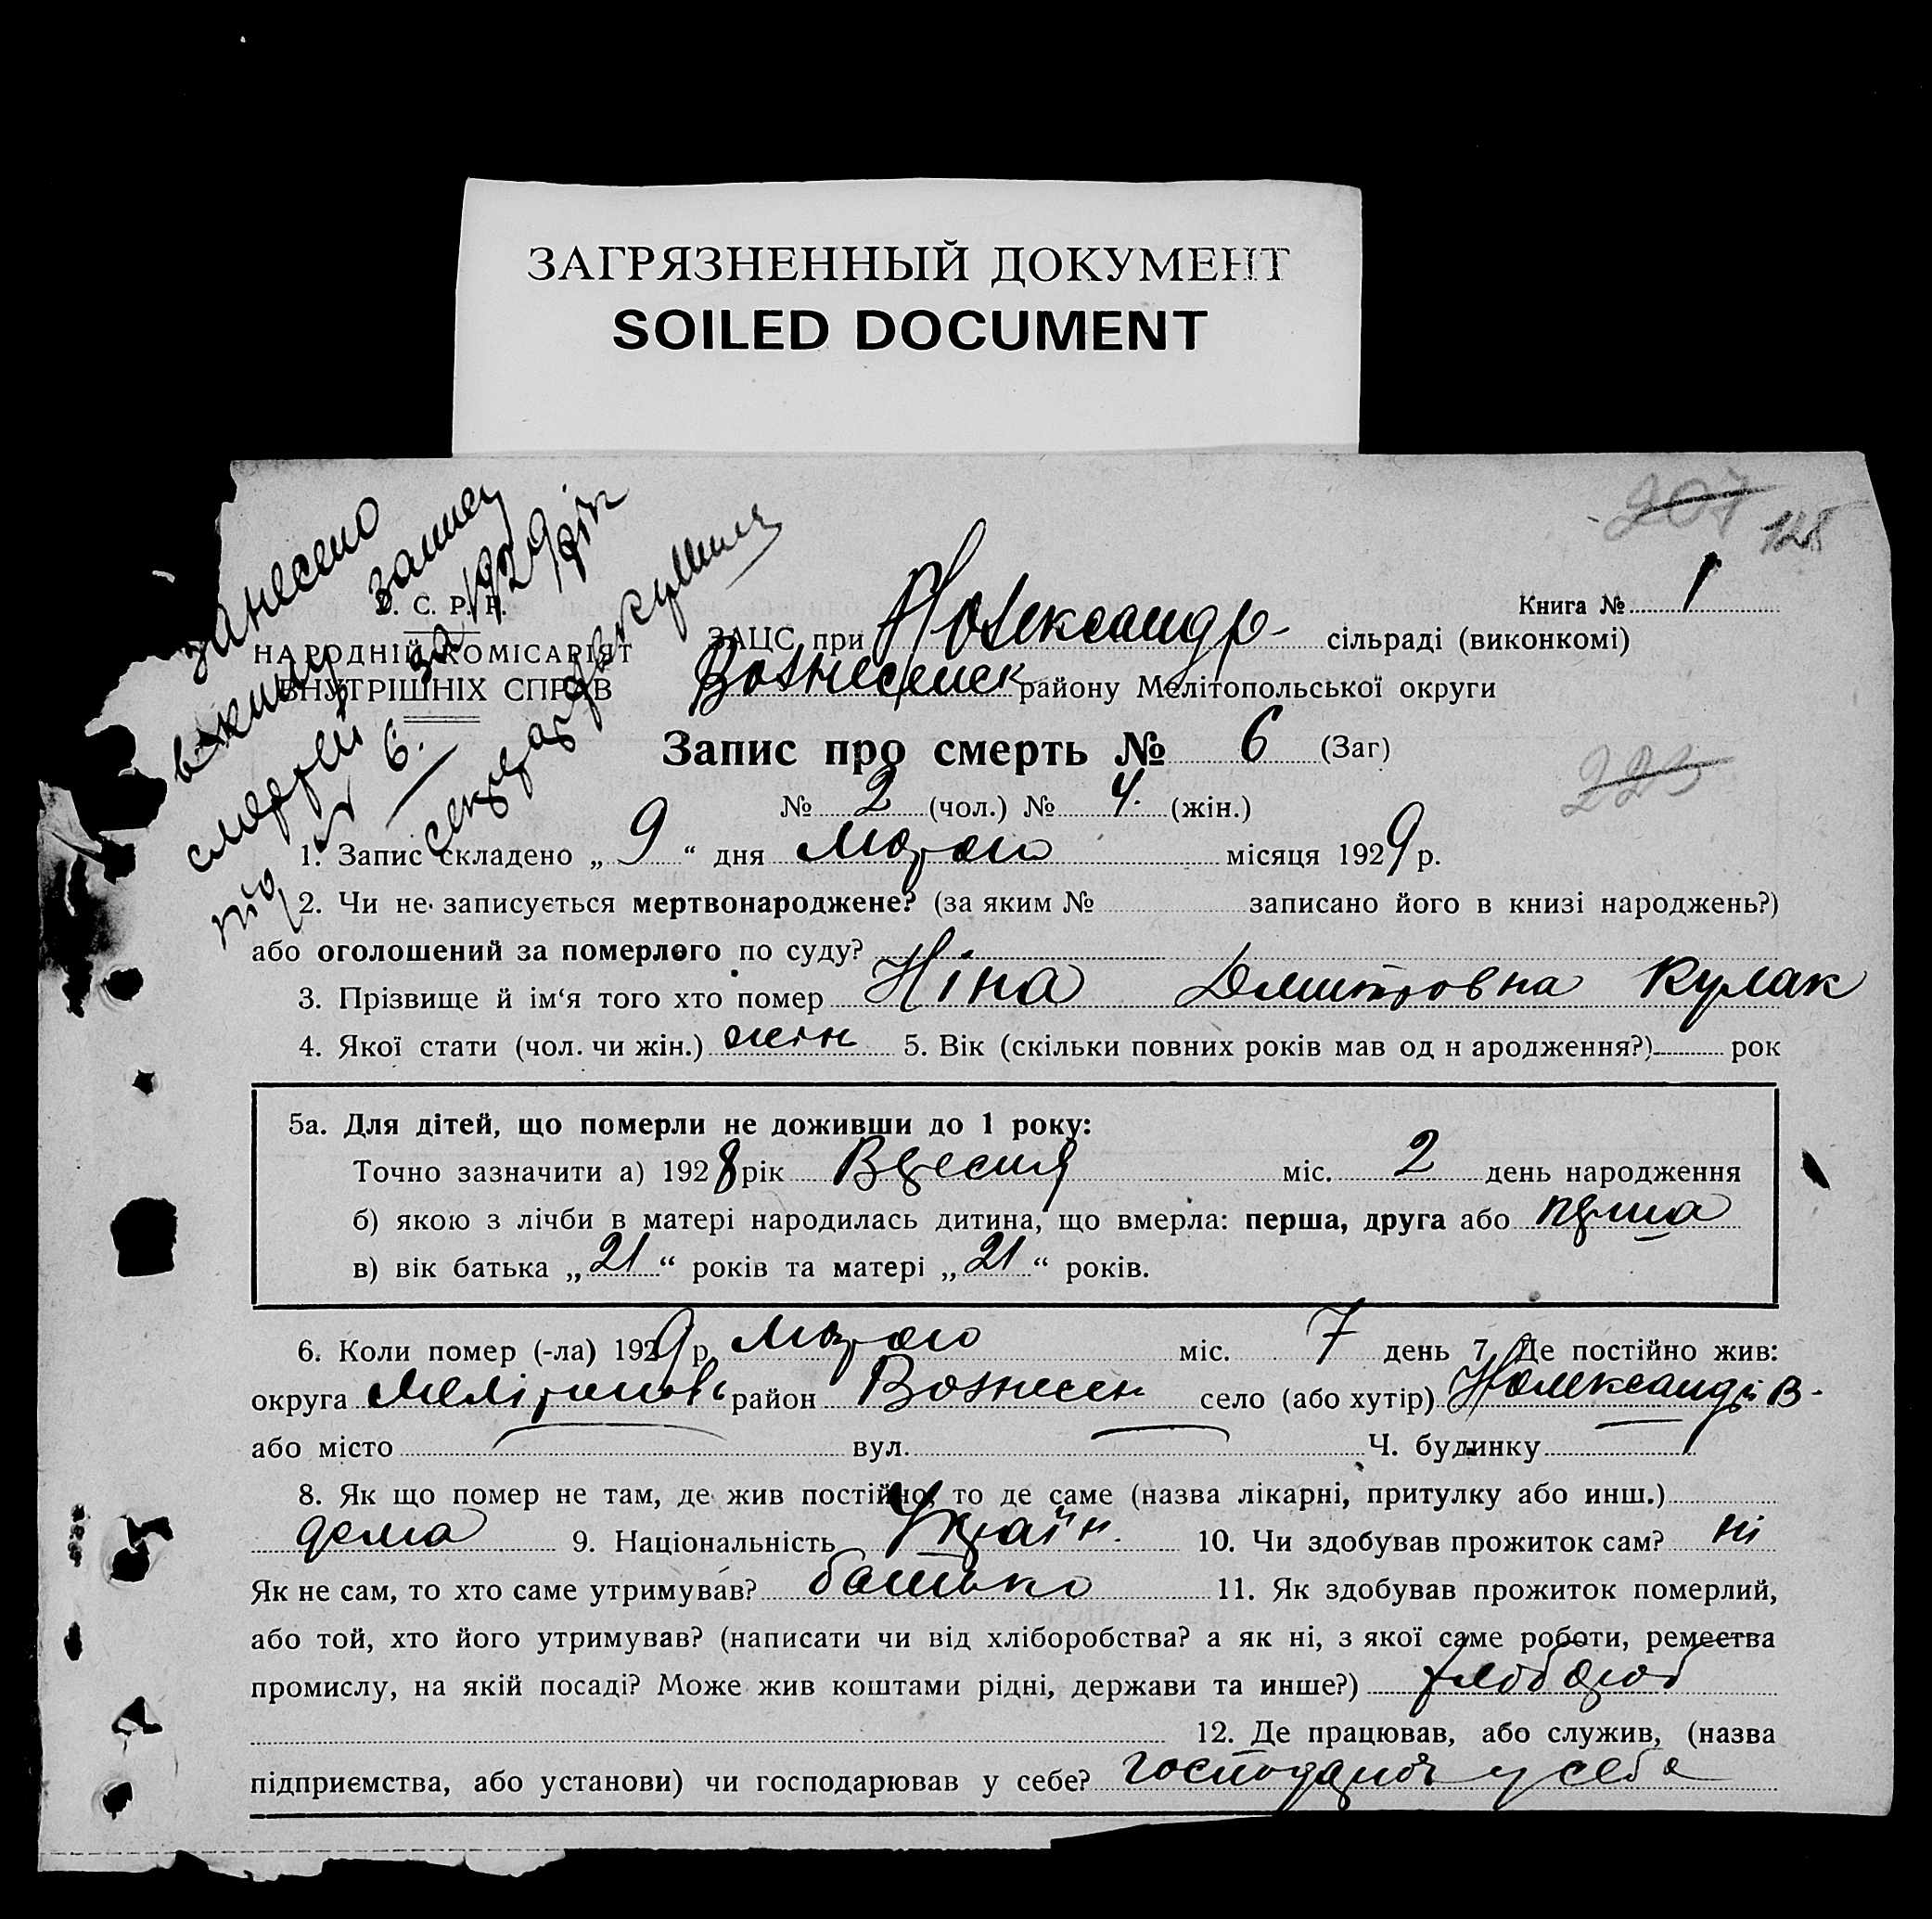 ЗАГРЯЗНЕННЫЙ ДОКУМЕНТ
SOILED DOCUMENT
207 128
занесено
в книгу запису
смертей за 1929 рік
під № 6.
секретар
У. С. Р. Р.
НАРОДНІЙ КОМІСАРІЯТ
ВНУТРІШНІХ СПРАВ
Книга № 1
ЗАЦС при Н Олександр- сільраді (виконкомі)
Вознесенск району Мелітопольської округи
Запис про смерть № 6 (Заг)
223
№ 2 (чол.) № 4. (жін.)
1. Запис складено „ 9 “ дня Марта місяця 1929 р.
2. Чи не записується мертвонароджене? (за яким № записано його в книзі народжень?)
або оголошений за померлого по суду?
3. Прізвище й ім‘я того хто помер Ніна Дмитровна Кулак
4. Якої стати (чол. чи жін.) жін 5. Вік (скільки повних років мав од н ародження?) рок
5а. Для дітей, що померли не доживши до 1 року:
Точно зазначити а) 1928 рік Вересня міс. 2 день народження
б) якою з лічби в матері народилась дитина, що вмерла: перша, друга або перша
в) вік батька „ 21 “ років та матері „ 21 “ років.
6. Коли помер (-ла) 1929 р. Марта міс. 7 день 7. Де постійно жив:
округа Меліт район Вознесен село (або хутір) Н Олександрів-
або місто вул. Ч. будинку
8. Як що помер не там, де жив постійно, то де саме (назва лікарні, притулку або инш.)
дома 9. Національність Україн. 10. Чи здобував прожиток сам? ні
Як не сам, то хто саме утримував? батько 11. Як здобував прожиток померлий,
або той, хто його утримував? (написати чи від хліборобства? а як ні, з якої саме роботи, ремества
промислу, на якій посаді? Може жив коштами рідні, держави та инше?) хлібороб
12. Де працював, або служив, (назва
підприємства, або установи) чи господарював у себе? господарюв у себе